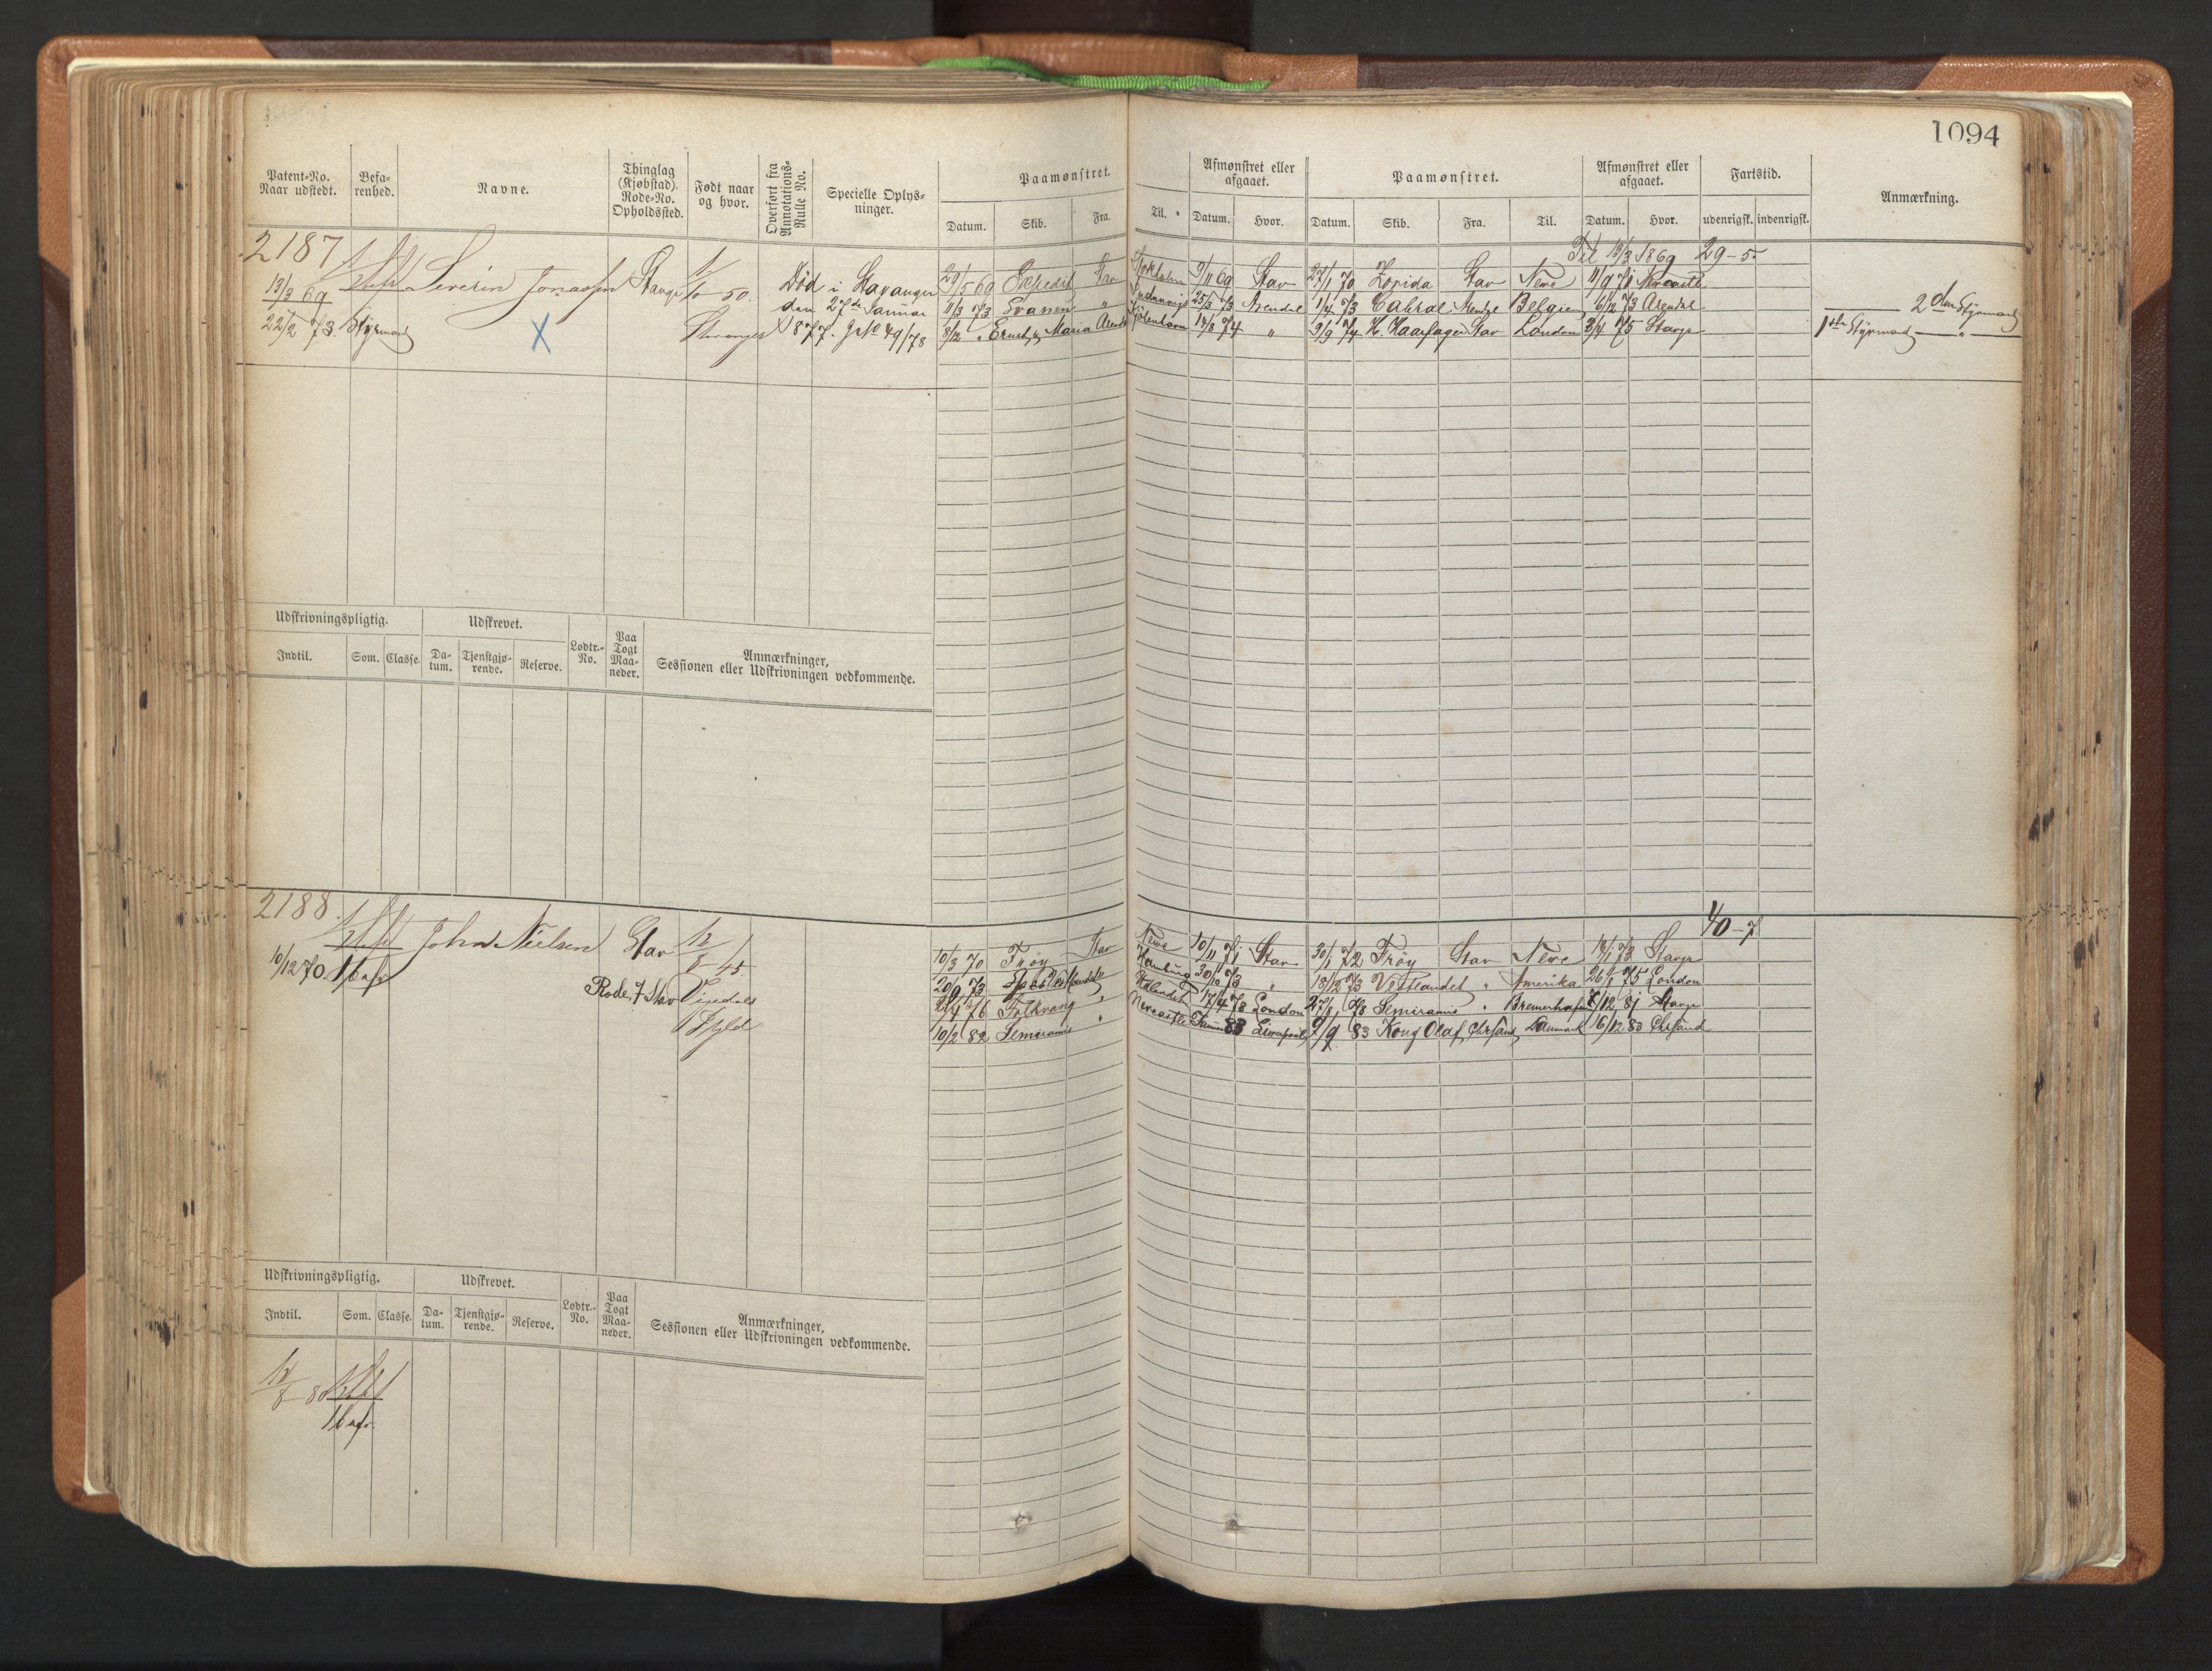 1094
Patent-No. Naar udstedt.
Befarenhed.
Navne.
Thinglag (Kjøbstad). Rode-No. Opholdssted.
Født naar og hvor.
Overført fra Annotations-Rulle No.
Specielle Oplysninger.
Paamønstret.
Datum. Skib. Fra. Til.
Afmønstret eller afgaaet.
Datum. Hvor.
Paamønstret.
Datum. Skib. Fra. Til.
Afmønstret eller afgaaet.
Datum. Hvor.
Fartstid.
udenrigsk. indenrigsk.
Anmærkning.
2187
Til 13/3 1869 29-5
13/3 69 Severin Jonassen 50. Død i Stavanger
29/5 69 Expedit Stav 9/11 69 Stav 27/1 70 Zorida Stav Newe 11/9 71 Newcastle
den 27de Januar
11/3 73 Svanen " 25/3 73 Arendal 1/4 73 Cabral Belgien 6/12 73 Arendal
2den Styrmand
22/2 73. Styrmand Stavanger 1877. J No 49/78
8/12 " Maria Arendal Kjøbenhavn 14/8 74 " 9/9 74 H. Haarfager Stav London 3/4 75 Stavgr
1ste Styrmand "
X
Udskrivningspligtig.
Indtil. Som. Classe.
Udskrevet.
Datum. Tjenstgjørende. Reserve.
Lodtr.-No.
Paa Togt Maaneder.
Anmærkninger, Sessionen eller Udskrivningen vedkommende.
2188
40-7
10/12 70. John Nielsen Stav 12/8 45
Rode 7 Stav
10/3 70 Frøy Stav Newe 10/11 71 Stav 30/1 72 Frøy Stav Newe 18/1 73 Stavgr
20/9 73 Hamburg 30/10 73 " 18/12 73 Vestlandet " Amerika 26/1 75 London
2/4 76 Folkvang " 17/4 78 London 27/8 78 Semiramis " Bremerhafen 8/12 81 Stavgr
10/2 82 Semiramis " Newcastle 83 Liverpool 9/9 83 Kong Olaf Chrsand Danmark 16/12 83 Chrsand
Udskrivningspligtig.
Indtil. Som. Classe.
Udskrevet.
Datum. Tjenstgjørende. Reserve.
Lodtr.-No.
Paa Togt Maaneder.
Anmærkninger, Sessionen eller Udskrivningen vedkommende.
12/8 80